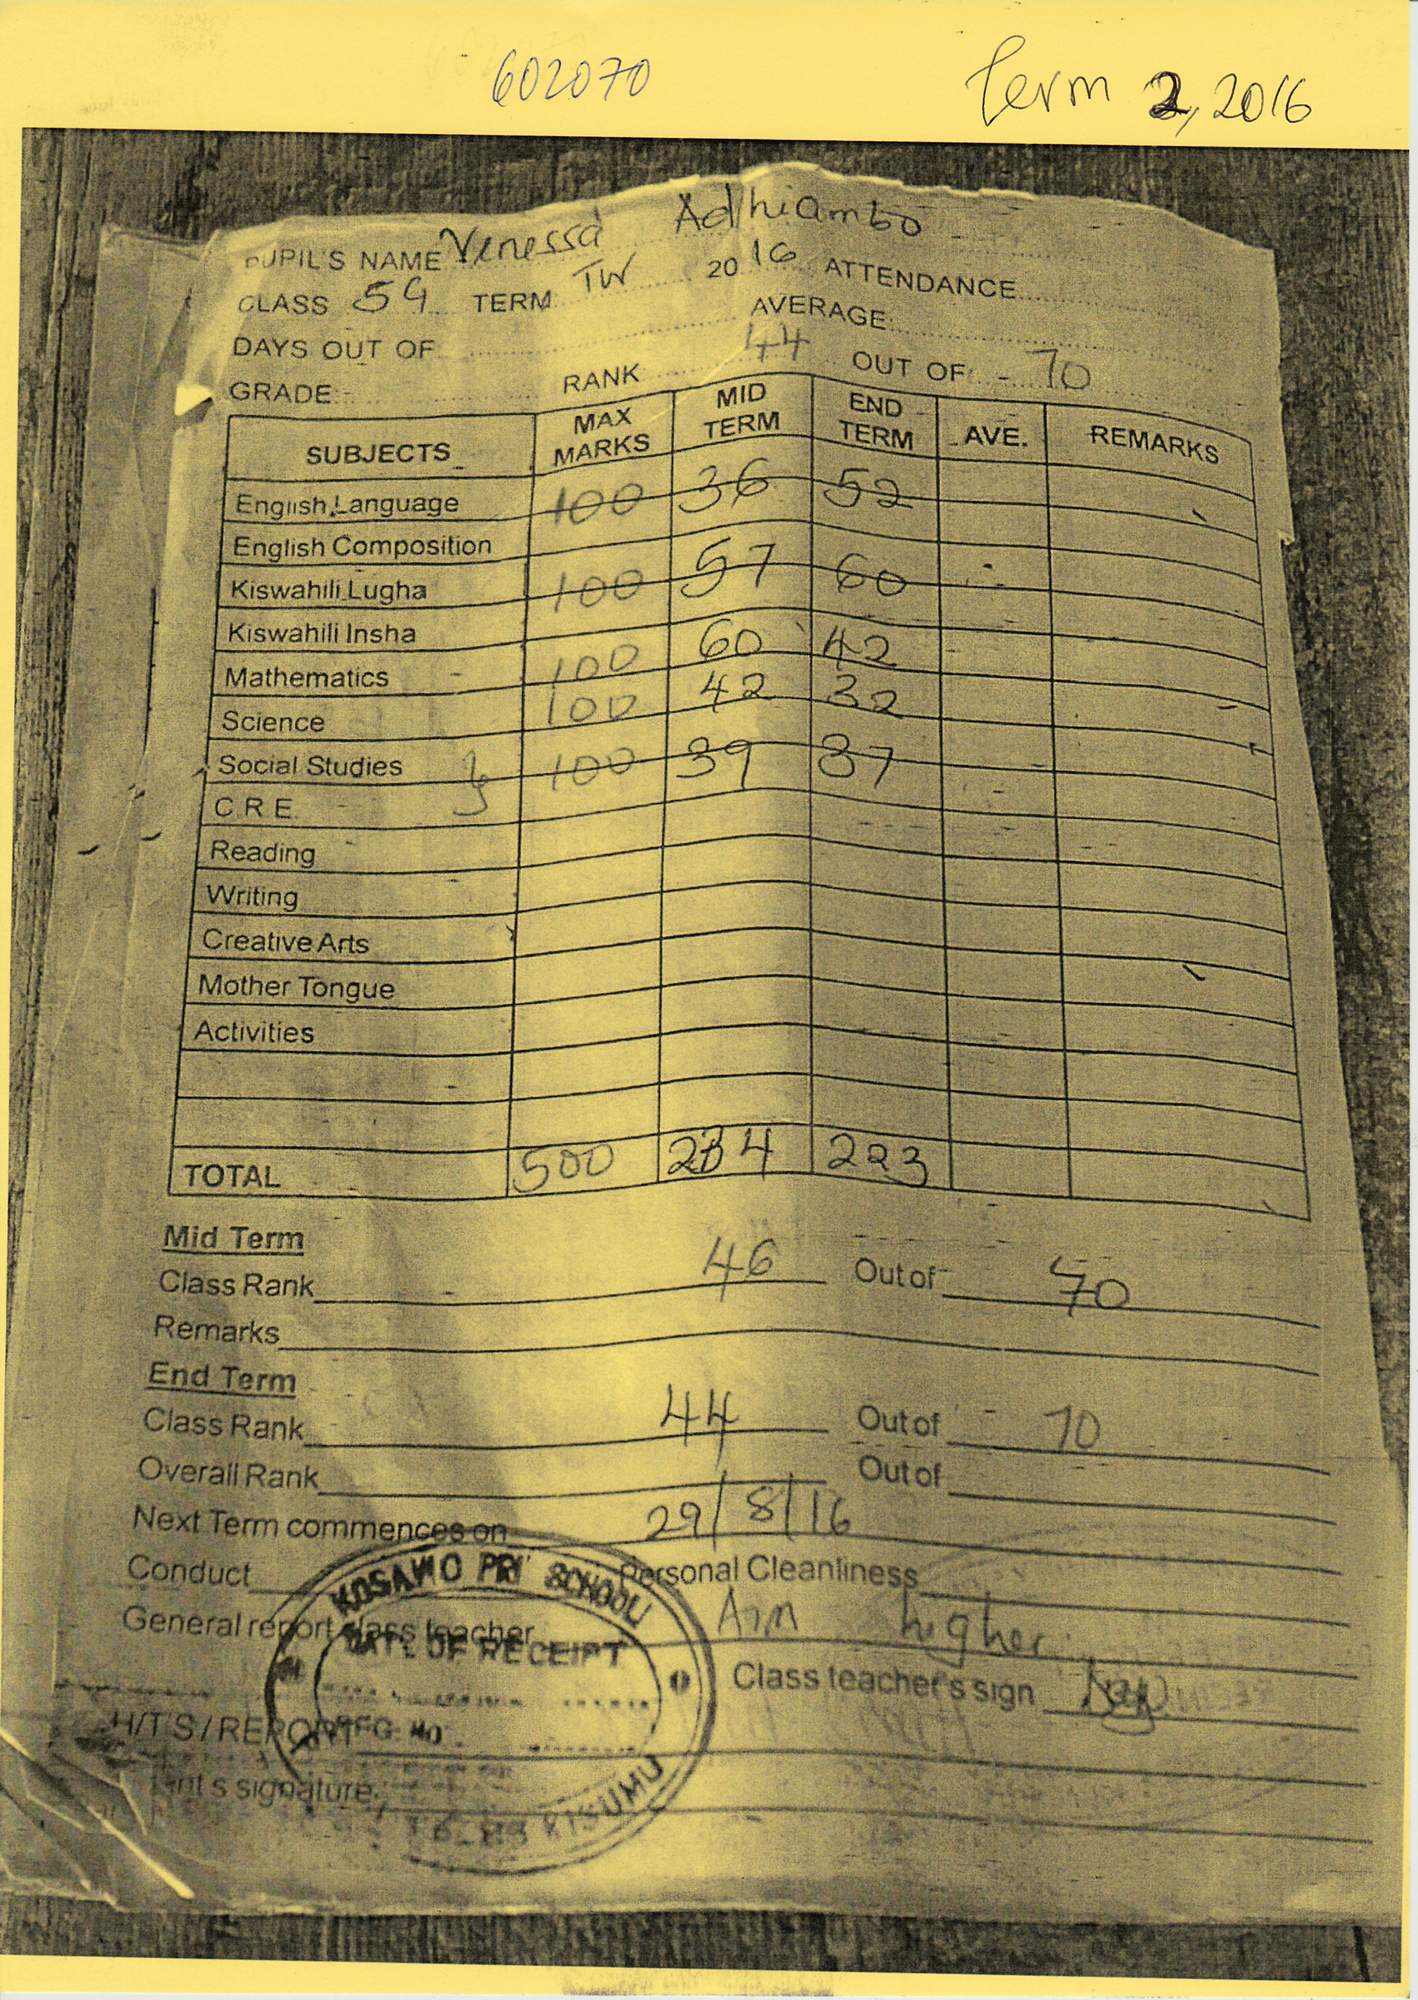 602070
Term 2, 2016
PUPIL'S NAME Venessa Adhiambo
CLASS 5G TERM TW 2016 ATTENDANCE
DAYS OUT OF AVERAGE:
GRADE:- RANK 44 OUT OF - 70
SUBJECTS MAX MARKS MID TERM END TERM AVE. REMARKS
English Language 100 36 52
English Composition
Kiswahili Lugha 100 57 60
Kiswahili Insha
Mathematics 100 60 42
Science 100 42 32
Social Studies 100 39 37
C.R.E.
Reading
Writing
Creative Arts
Mother Tongue
Activities
TOTAL 500 234 223
Mid Term
Class Rank 46 Out of 70
Remarks
End Term
Class Rank 44 Out of - 70
Overall Rank Out of
Next Term commences on 29/8/16
Conduct Personal Cleanliness
General report class teacher Aim higher.
Class teacher's sign
H/T S / REPORT
signature
KOSAWO PRI SCHOOL
DATE OF RECEIPT
KISUMU